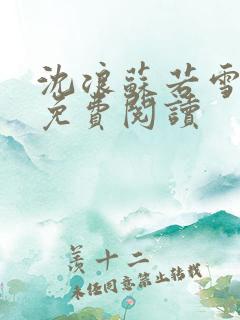 沈浪蘇若雪
免費閱讀
羨十二
未經同意禁止轉載